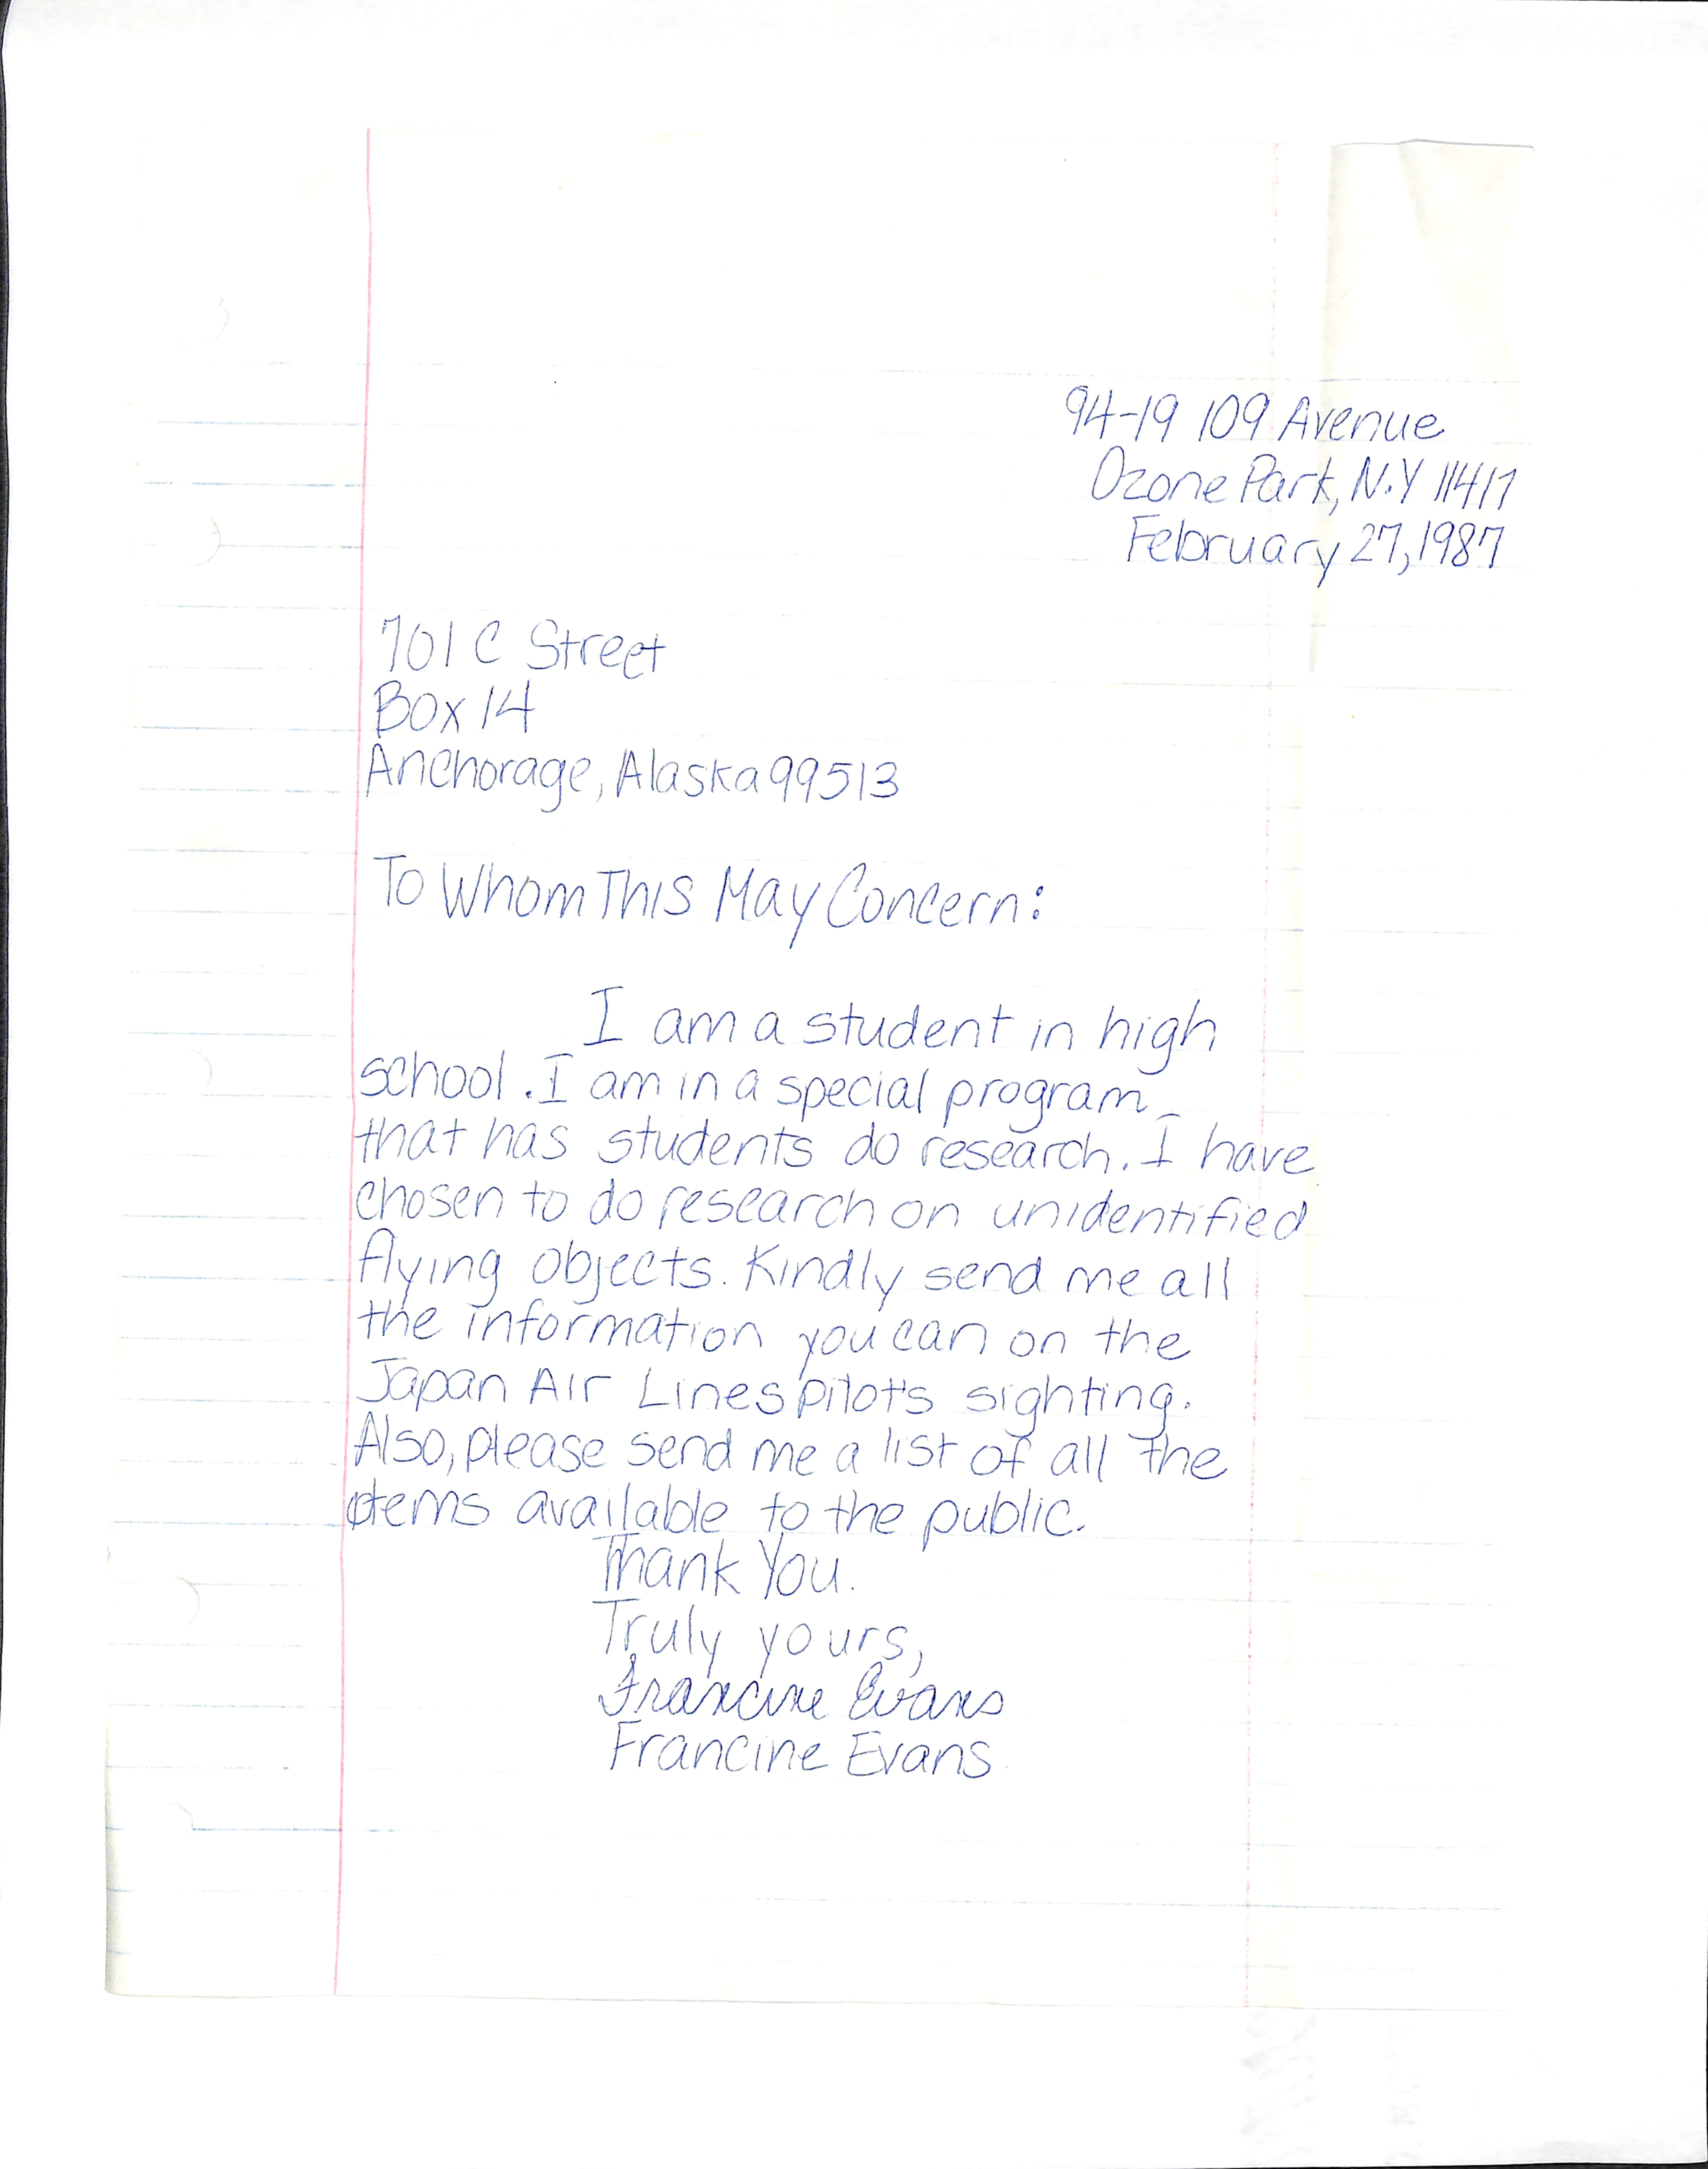 94-19 109 Avenue
Ozone Park, N.Y 11417
February 27, 1987
701 C Street
Box 14
Anchorage, Alaska 99513
To Whom This May Concern:
I am a student in high
school. I am in a special program
that has students do research. I have
chosen to do research on unidentified
flying objects. Kindly send me all
the information you can on the
Japan Air Lines pilot's sighting.
Also, please send me a list of all the
items available to the public.
Thank You.
Truly yours,
Francine Evans
Francine Evans